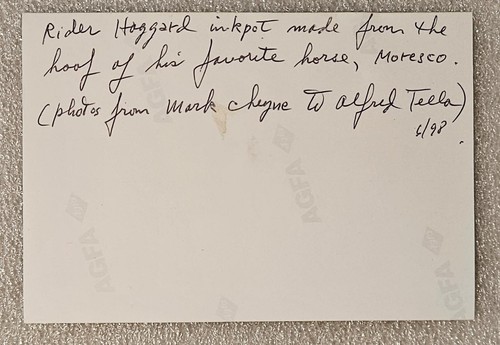 Rider Haggard inkpot made from the
hoof of his favorite horse, Moresco.
(photos from Mark Cheyne to Alfred Tella)
6/98.
AGFA
AGFA
AGFA
AGFA